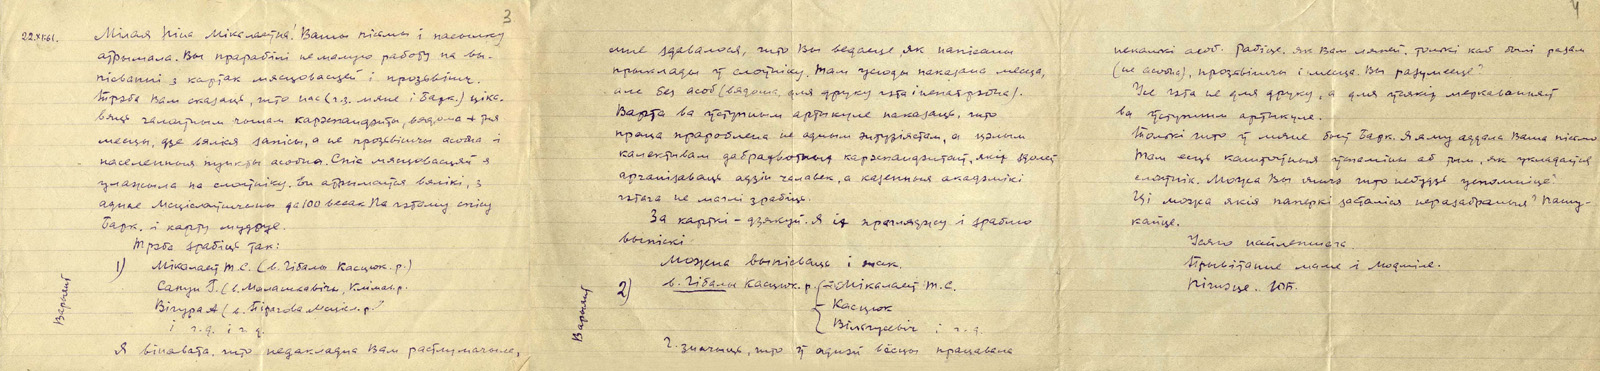 3
22.XI.61.
Мілая Ніна Мікалаеўна! Вашы пісьмы і пасылку
атрымала. Вы прарабілі немалую работу па вы-
пісванні з картак мясцовасцей і прозвішч.
Трэба Вам сказаць, што нас (г.зн. мяне і Барк.) ціка-
вяць галоўным чынам карэспандэнты, вядома + тыя
месцы, дзе вяліся запісы, а не прозвішчы асобна і
населенныя пункты асобна. Спіс мясцовасцей я
ўлажыла па слоўніку. Ён атрымаўся вялікі, з
аднае Мсціслаўшчыны да 100 вёсак. Па гэтаму спісу
Барк. і карту мудруе.
Трэба зрабіць так:
Варыянт
1) Мікалаеў М.С. (в. Чыбалы Касцюк. р.)
Сапун Г. (в. Маласкавічы, Клімав. р.
Вігура А (в. Мсцісл. р.
і г.д. і г.д.
Я вінавата, што недакладна Вам растлумачыла,
мне здавалося, што Вы ведаеце, як напісаны
прыклады ў слоўніку. Там усюды паказана месца,
але без асоб (вядома, для друку гэта і непатрэбна).
Варта ва ўступным артыкуле паказаць, што
праца прароблена не адным энтузіястам, а цэлым
калектывам дабраахвотных карэспандэнтаў, якіх здолеў
арганізаваць адзін чалавек, а казенныя акадэмікі
гэтага не маглі зрабіць.
За карткі – дзякуй. Я іх прагляджу і зраблю
выпіскі
Можна выпісваць і так.
Варыянт
2) в. Чыбалы Касцюк. р. { Мікалаеў М.С.
Касцюк
і г.д.
Г. значыць, што ў адной вёсцы працавала
4
некалькі асоб. Рабіце, як Вам лягчэй, толькі каб былі разам
(не асобна), прозвішчы і месца. Вы разумееце?
Усё гэта не для друку, а для меркаванняў
ва ўступным артыкуле.
Толькі што ў мяне быў Барк. Я яму аддала Ваша пісьмо.
Там ёсць каштоўныя ўспаміны аб тым, як укладаўся
слоўнік. Можа Вы яшчэ што небудзь успомніце?
Ці можа якія паперкі засталіся неразабраныя? Пашу-
кайце.
Усяго найлепшага
Прывітанне маме і Людміле.
Пішыце. ЮП.